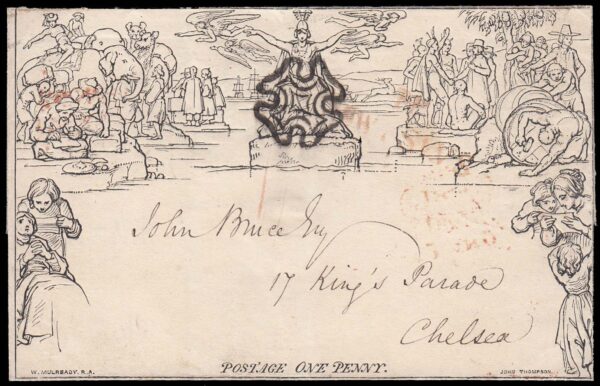 John Bruce Esq
17 King's Parade
Chelsea
W. MULREADY. R.A.
POSTAGE ONE PENNY.
JOHN THOMPSON.